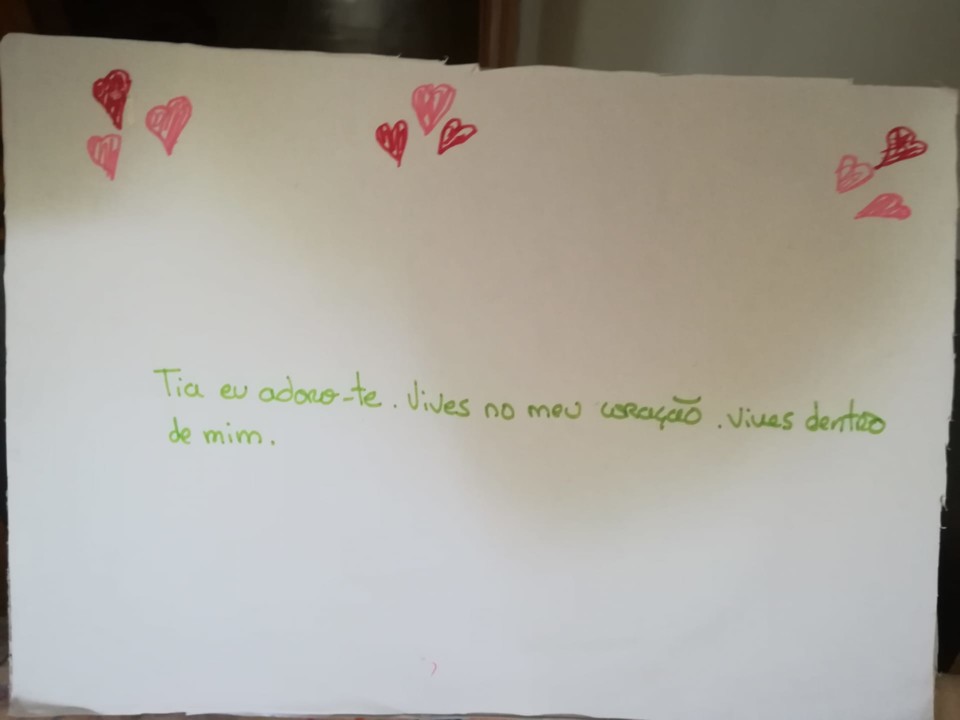 Tia eu adoro-te. Vives no meu coração. Vives dentro
de mim.